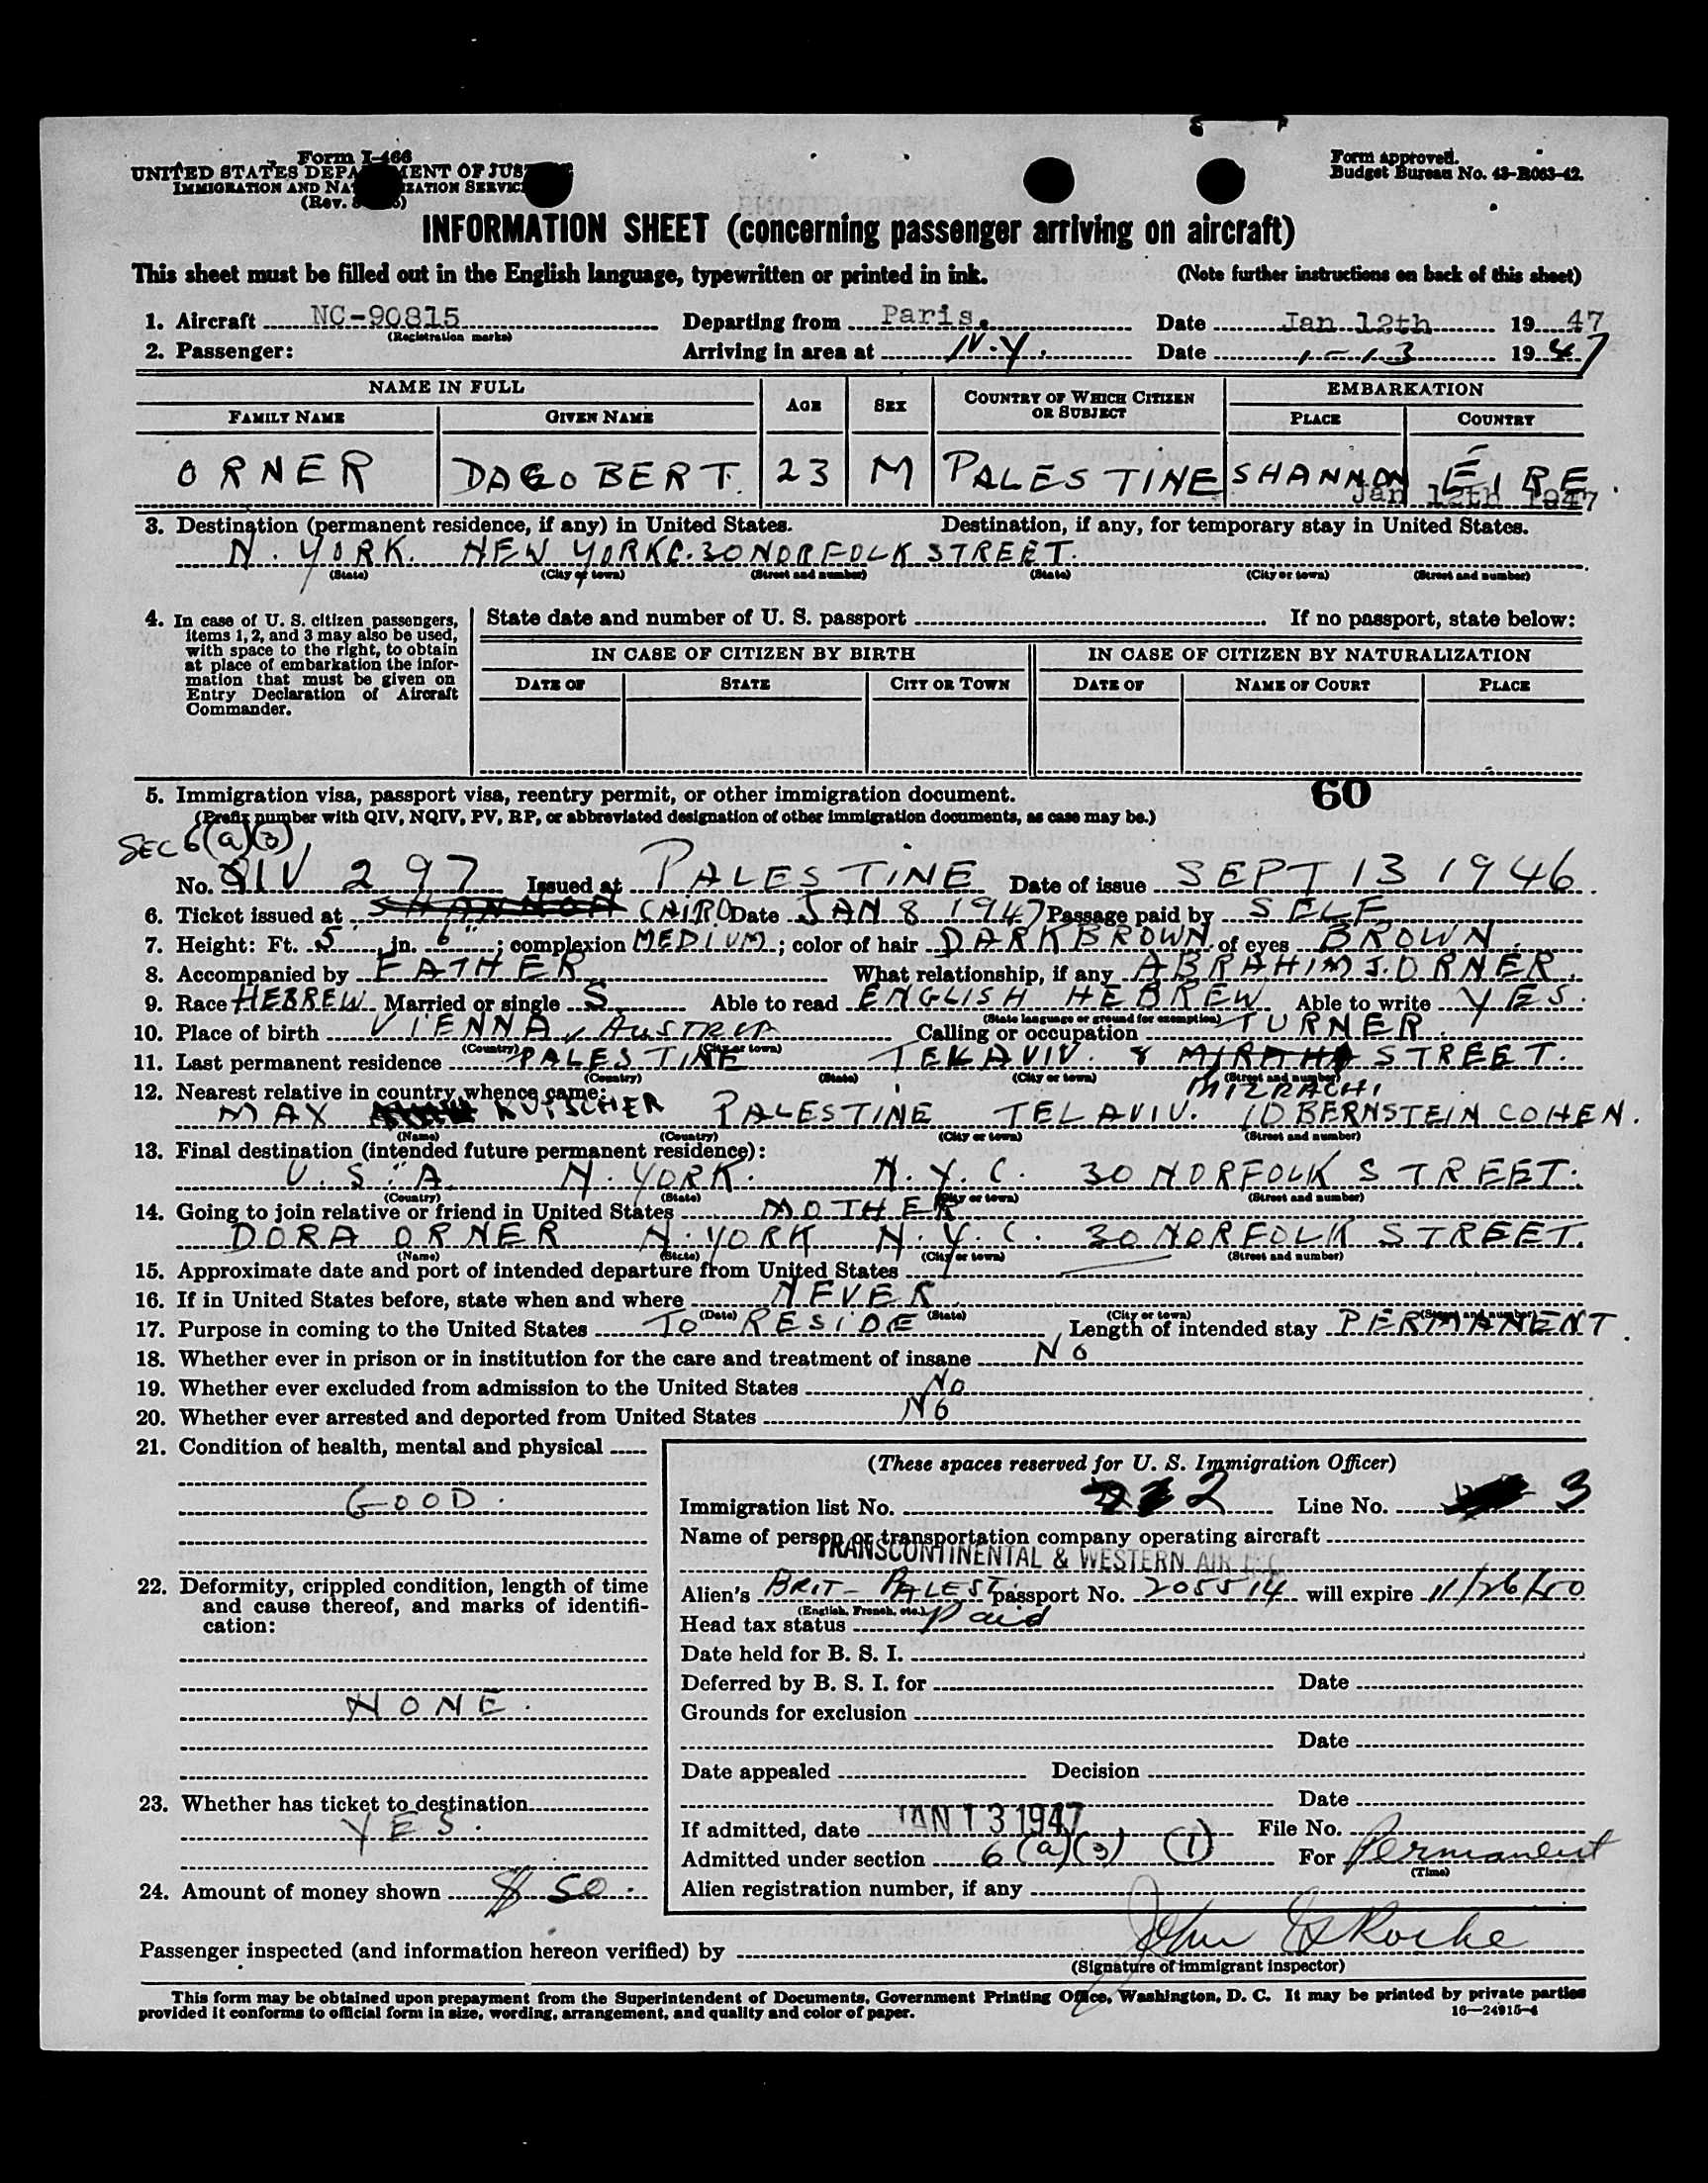 Form I-466
UNITED STATES DEPARTMENT OF JUSTICE
IMMIGRATION AND NATURALIZATION SERVICE
(Rev.
Form approved.
Budget Bureau No. 43-R063-42.
INFORMATION SHEET (concerning passenger arriving on aircraft)
This sheet must be filled out in the English language, typewritten or printed in ink. (Note further instructions on back of this sheet)
1. Aircraft NC-90815 Departing from Paris. Date Jan 12th 1947
(Registration marks)
2. Passenger: Arriving in area at N.Y. Date 1-13 1947
NAME IN FULL AGE SEX COUNTRY OF WHICH CITIZEN OR SUBJECT EMBARKATION
FAMILY NAME GIVEN NAME PLACE COUNTRY
ORNER DAGOBERT. 23 M PALESTINE SHANNON ÉIRE.
Jan 12th 1947
3. Destination (permanent residence, if any) in United States. Destination, if any, for temporary stay in United States.
N. YORK. NEW YORK C. 30 NORFOLK STREET.
(State) (City or town) (Street and number) (State) (City or town) (Street and number)
4. In case of U. S. citizen passengers, items 1, 2, and 3 may also be used, with space to the right, to obtain at place of embarkation the information that must be given on Entry Declaration of Aircraft Commander.
State date and number of U. S. passport If no passport, state below:
IN CASE OF CITIZEN BY BIRTH IN CASE OF CITIZEN BY NATURALIZATION
DATE OF STATE CITY OR TOWN DATE OF NAME OF COURT PLACE
60
5. Immigration visa, passport visa, reentry permit, or other immigration document.
(Prefix number with QIV, NQIV, PV, RP, or abbreviated designation of other immigration documents, as case may be.)
SEC 6(a)(3)
No. QIV 297 Issued at PALESTINE Date of issue SEPT 13 1946.
6. Ticket issued at SHANNON CAIRO Date JAN 8 1947 Passage paid by SELF
7. Height: Ft. 5 in. 6"; complexion MEDIUM; color of hair DARK BROWN of eyes BROWN.
8. Accompanied by FATHER What relationship, if any ABRAHIM J. ORNER.
9. Race HEBREW Married or single S Able to read ENGLISH HEBREW Able to write YES.
(State language or ground for exemption)
10. Place of birth VIENNA, AUSTRIA Calling or occupation TURNER.
(Country) (City or town)
11. Last permanent residence PALESTINE TEL AVIV. 8 STREET.
(Country) (State) (City or town) (Street and number)
MIZRACHI
12. Nearest relative in country whence came:
MAX KUTSCHER PALESTINE TEL AVIV. 10 BERNSTEIN COHEN.
(Name) (Country) (City or town) (Street and number)
13. Final destination (intended future permanent residence):
U.S.A. N. YORK. N.Y.C. 30 NORFOLK STREET.
(Country) (State) (City or town) (Street and number)
14. Going to join relative or friend in United States MOTHER
DORA ORNER N. YORK N.Y.C. 30 NORFOLK STREET.
(Name) (State) (City or town) (Street and number)
15. Approximate date and port of intended departure from United States
16. If in United States before, state when and where NEVER.
(Date) (State) (City or town) (Street and number)
17. Purpose in coming to the United States TO RESIDE Length of intended stay PERMANENT.
18. Whether ever in prison or in institution for the care and treatment of insane NO
19. Whether ever excluded from admission to the United States NO
20. Whether ever arrested and deported from United States NO
21. Condition of health, mental and physical
GOOD.
22. Deformity, crippled condition, length of time and cause thereof, and marks of identification:
NONE.
23. Whether has ticket to destination
YES.
24. Amount of money shown $50.
(These spaces reserved for U. S. Immigration Officer)
Immigration list No. 2 Line No. 3
Name of person or transportation company operating aircraft
TRANSCONTINENTAL & WESTERN AIR INC
Alien's BRIT-PALEST. passport No. 205514 will expire 11/26/50
(English, French, etc.)
Head tax status Paid
Date held for B. S. I.
Deferred by B. S. I. for Date
Grounds for exclusion
Date
Date appealed Decision
Date
If admitted, date JAN 13 1947 File No.
Admitted under section 6(a)(3) (1) For Permanent
(Time)
Alien registration number, if any
Passenger inspected (and information hereon verified) by
(Signature of immigrant inspector)
This form may be obtained upon prepayment from the Superintendent of Documents, Government Printing Office, Washington, D. C. It may be printed by private parties
provided it conforms to official form in size, wording, arrangement, and quality and color of paper. 16—24915-4